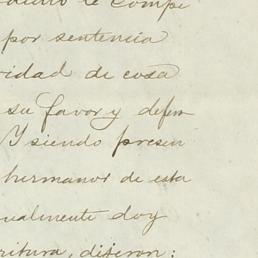 le Compe
por sentencia
ridad de cosa
su favor y defen
Y siendo presen
hermanos de esta
ualmente doy
ritura, dijeron: